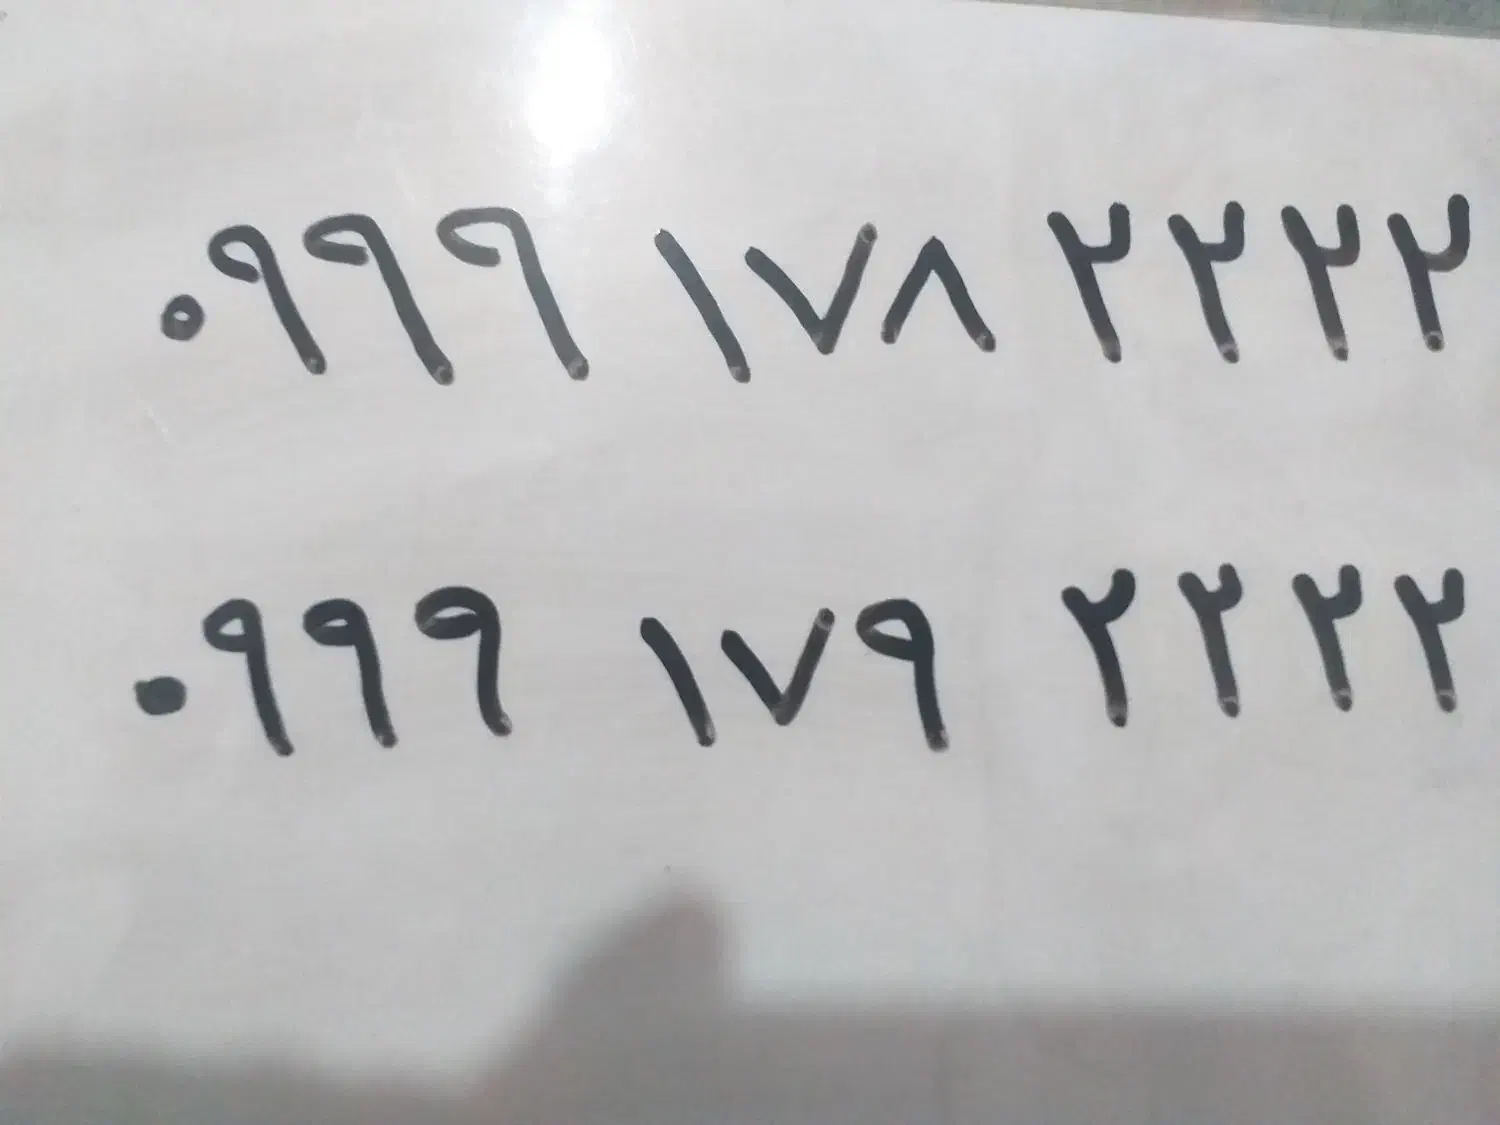 ۰۹۹۹ ۱۷۸ ۲۲۲۲
۰۹۹۹ ۱۷۹ ۲۲۲۲